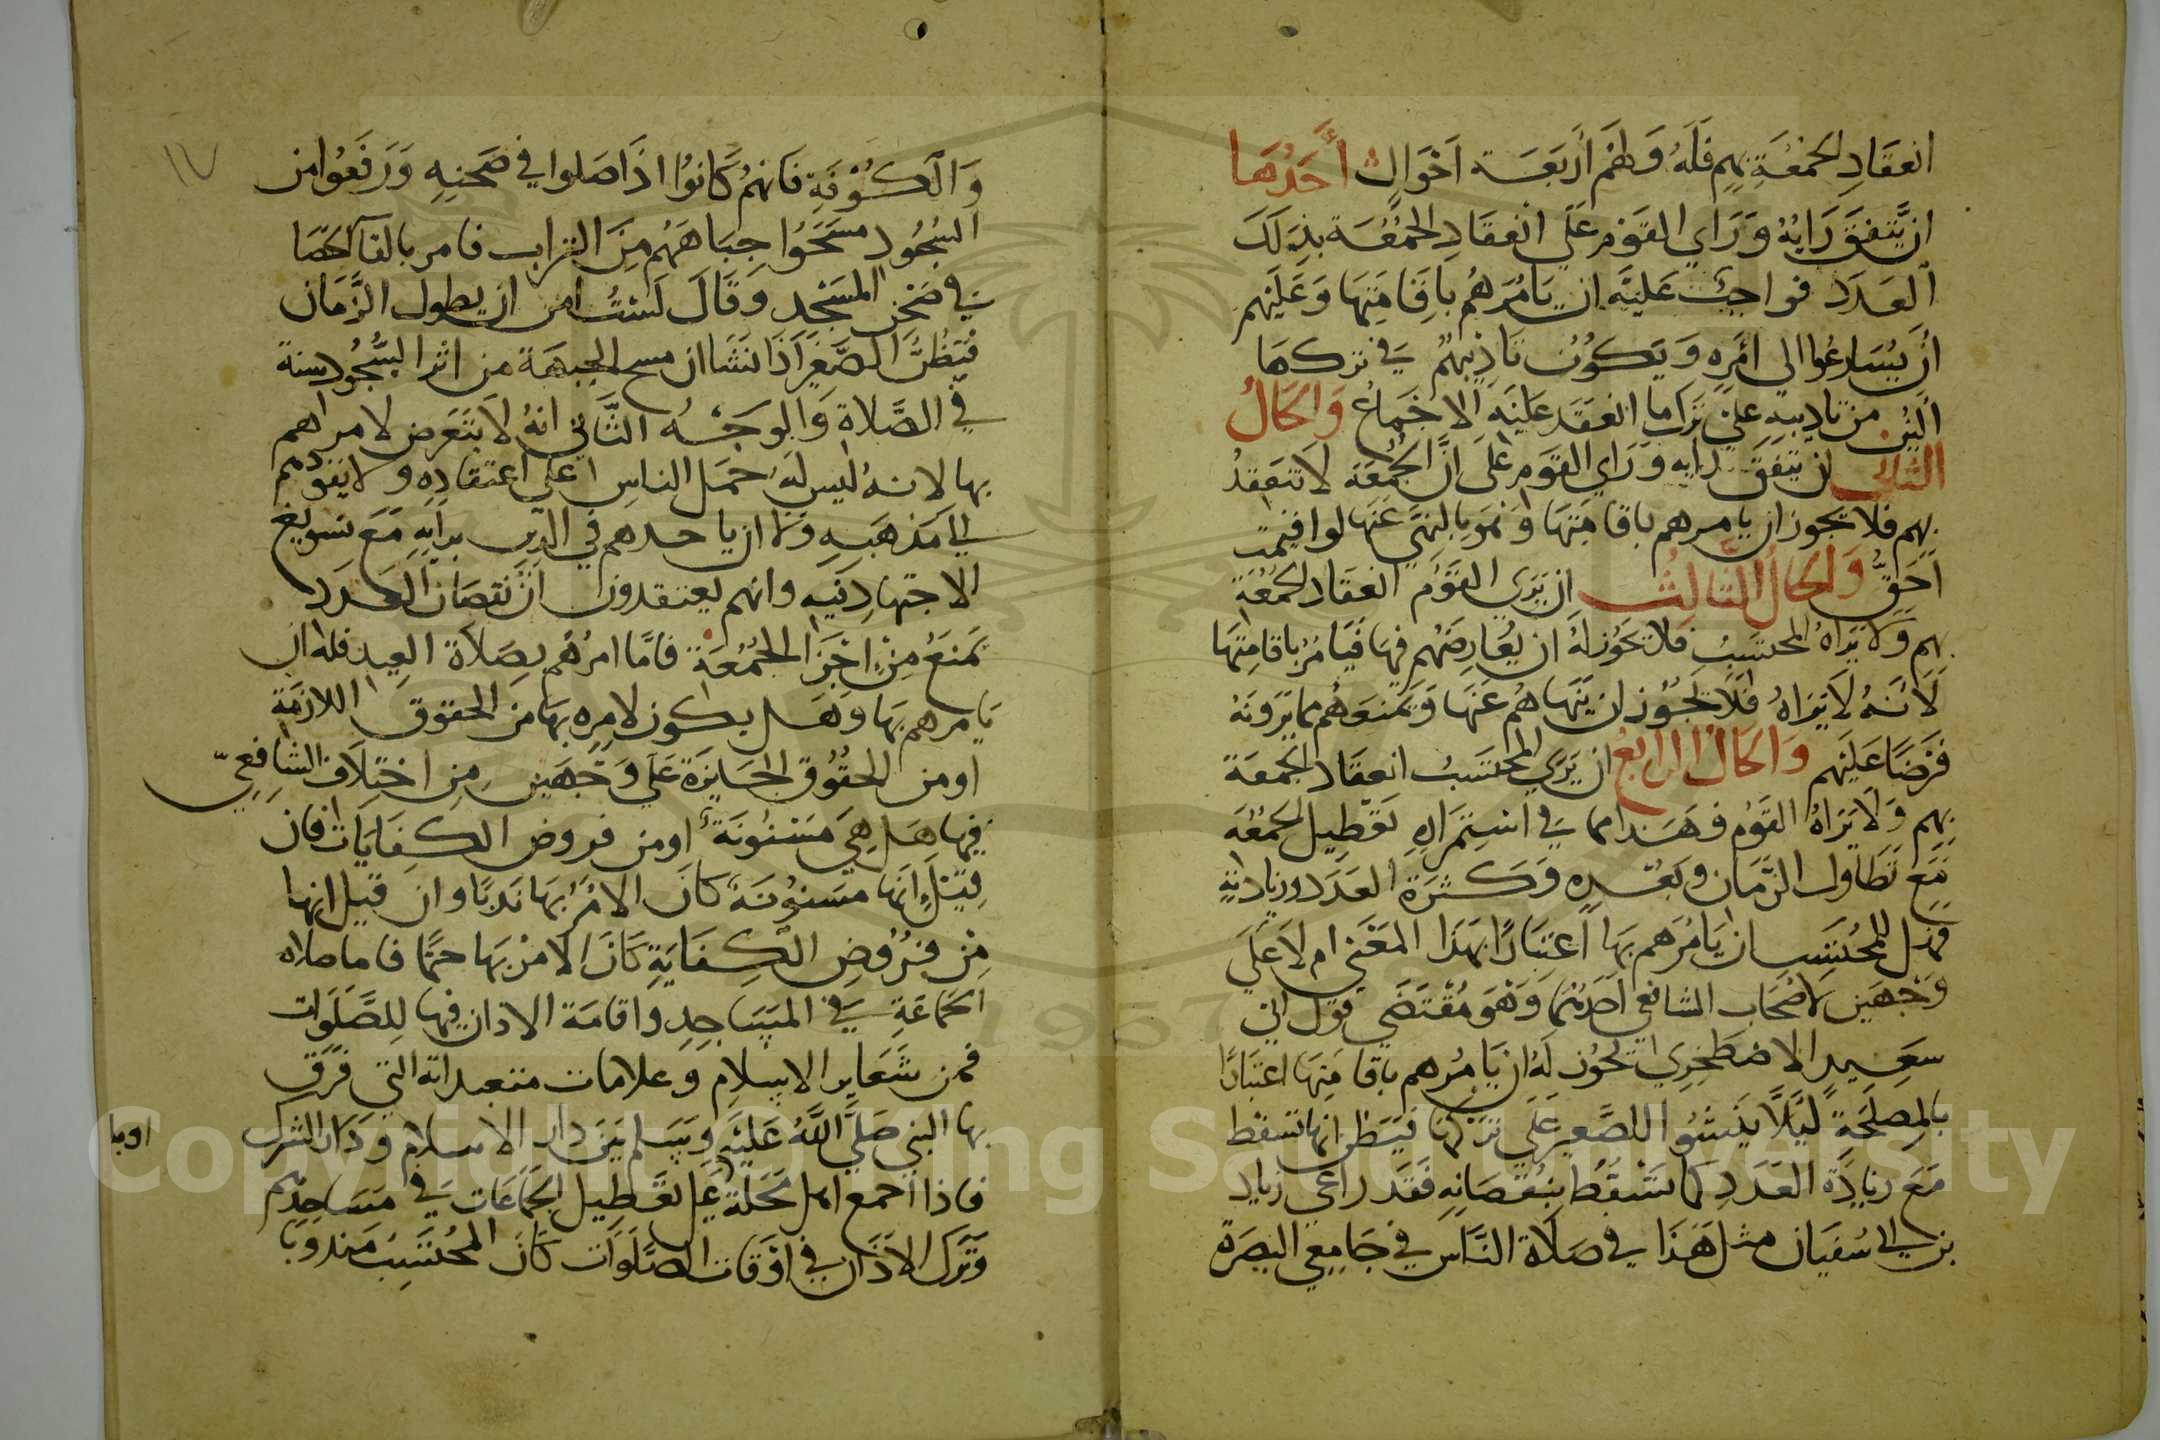 انعقاد الجمعة بهم فله ولهم أربعة احوال أحدها
ان يتفق رايه وراي القوم على انعقاد الجمعة بذلك
العدد فواجب عليه ان يامرهم باقامتها وعليهم
أن يسارعوا الى امره ويكون تاديبهم في تركها
الين من تاديبه على ترك ما انعقد عليه الاجماع والحال
الثاني ان يتفق رايه وراي القوم على ان الجمعة لا تنعقد
بهم فلا يجوز ان يامرهم باقامتها وهو بالنهي عنها لو اقيمت
احق والحال الثالث ان يرى القوم انعقاد الجمعة
بهم ولا يراه المحتسب فلا يجوز له ان يعارضهم فيها فيامر باقامتها
لانه لا يراه فلا يجوز ان ينهاهم عنها ويمنعهم مما يرونه
فرضا عليهم والحال الرابع ان يرى المحتسب انعقاد الجمعة
بهم ولا يراه القوم فهذا مما في استمراره تعطيل الجمعة
مع تطاول الزمان وبعده وكثرة العدد وزيادته
فهل للمحتسب ان يامرهم بها اعتبارا بهذا المعنى ام لا على
وجهين لاصحاب الشافعي احدهما وهو مقتضى قول ابي
سعيد الاصطخري يجوز له ان يامرهم باقامتها اعتبارا
بالمصلحة ليلا ينشوا الصغير على تركها فيظن انها تسقط
مع زيادة العدد كما تسقط بنقصانه فقد راعى زياد
بن ابي سفيان مثل هذا في صلاة الناس في جامعي البصرة
١٧
والكوفة فانهم كانوا اذا صلوا في صحنه ورفعوا من
السجود مسحوا جباههم من التراب فامر بالقاء الحصا
في صحن المسجد وقال لست امن ان يطول الزمان
فيظن الصغير اذا نشا ان مسح الجبهة من اثر السجود سنة
في الصلاة والوجه الثاني انه لا يتعرض لامراهم
بها لانه ليس له حمل الناس على اعتقاده ولا يقودهم
الى مذهبه ولا ان ياخذهم في الدين برايه مع تسويغ
الاجتهاد فيه وانهم يعتقدون ان نقصان العدد
يمنع من اجزا الجمعة فاما امرهم بصلاة العيد فله ان
يامرهم بها وهل يكون لامره بها من الحقوق اللازمة
او من الحقوق الجايزة على وجهين من اختلاف الشافعي
فيها هل هي مسنونة او من فروض الكفايات فان
قيل انها مسنونة كان الامر بها ندبا وان قيل انها
من فروض الكفاية كان الامر بها حتما فاما صلاه
الجماعة في المساجد واقامة الاذان فيها للصلوات
فمن شعاير الاسلام وعلامات متعبداته التي فرق
بها النبي صلى الله عليه وسلم بين دار الاسلام ودار الشرك
فاذا اجمع اهل محلة على تعطيل الجماعات في مساجدهم
وترك الاذان في اوقات الصلوات كان المحتسب مندوبا
Copyright © King Saud University
1957